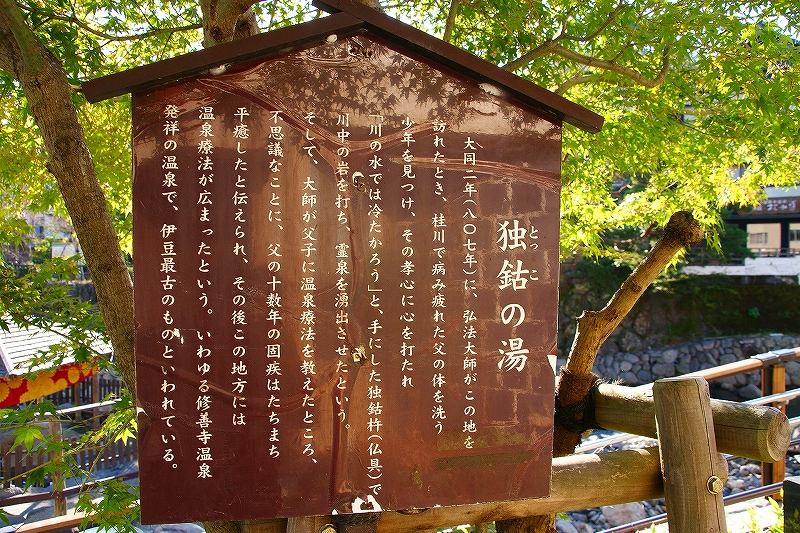 独鈷の湯
とっこ
大同二年(八〇七年)に、弘法大師がこの地を
訪れたとき、桂川で病み疲れた父の体を洗う
少年を見つけ、その孝心に心を打たれ
「川の水では冷たかろう」と、手にした独鈷杵(仏具)で
川中の岩を打ち、霊泉を湧出させたという。
そして、大師が父子に温泉療法を教えたところ、
不思議なことに、父の十数年の固疾はたちまち
平癒したと伝えられ、その後この地方には
温泉療法が広まったという。いわゆる修善寺温泉
発祥の温泉で、伊豆最古のものといわれている。